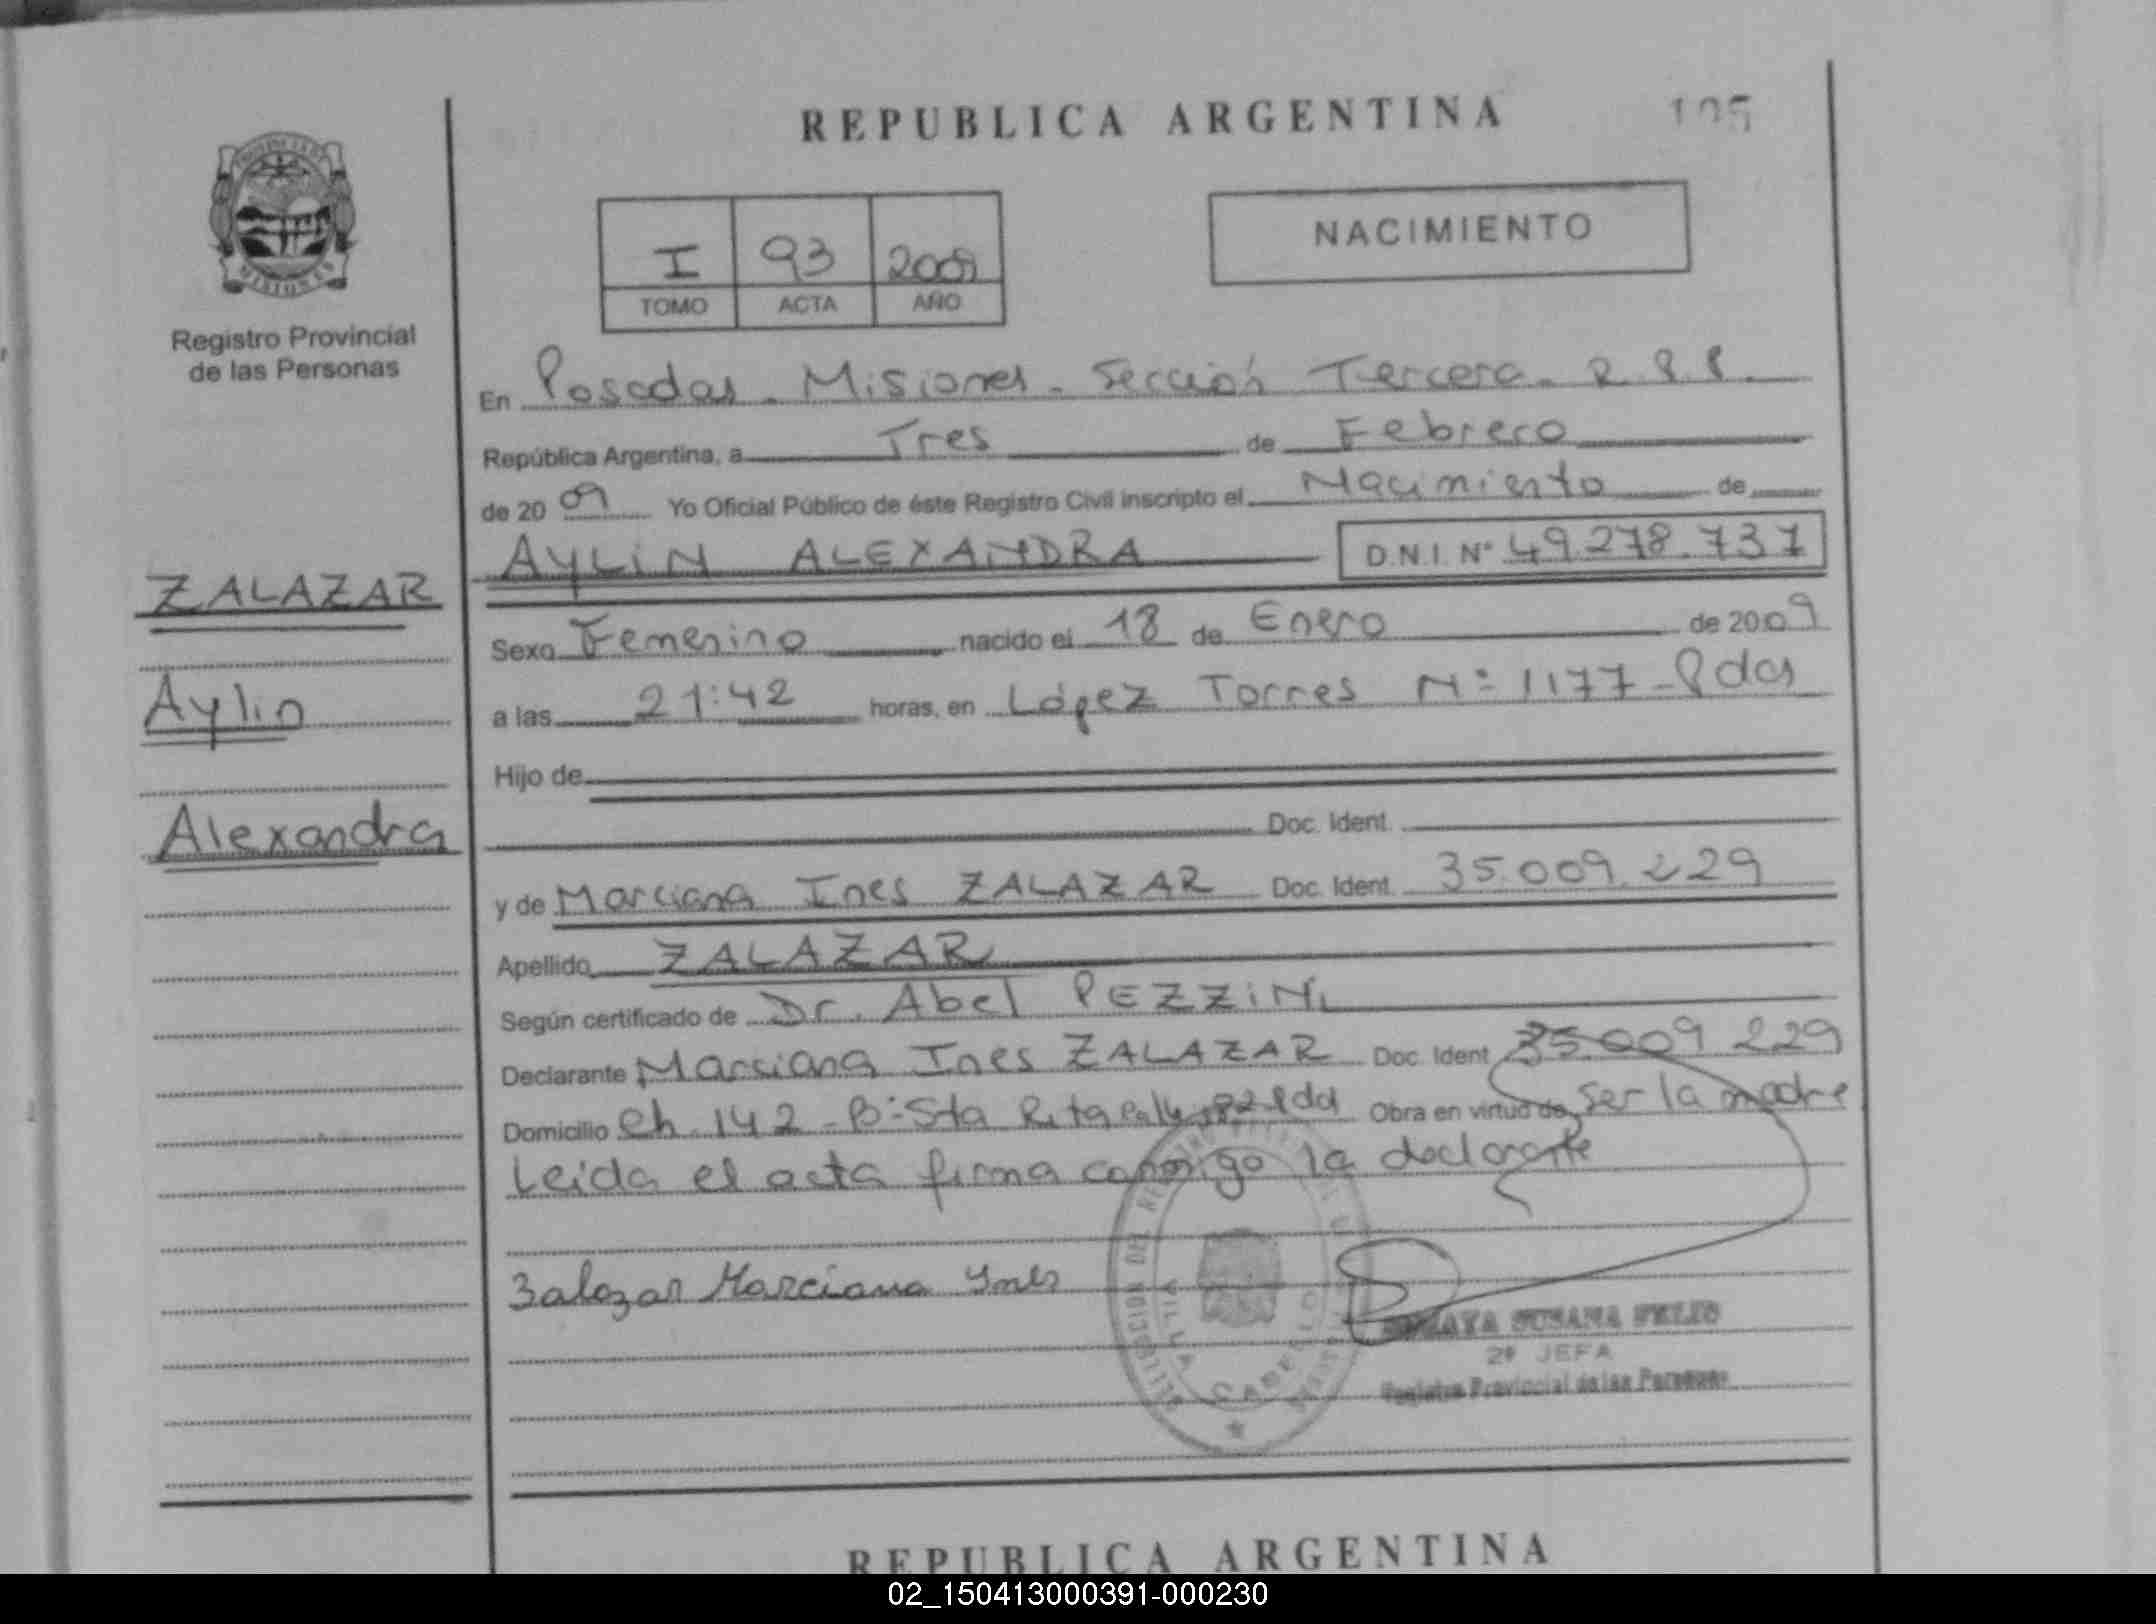 REPUBLICA ARGENTINA
105
I 93 2009
TOMO ACTA AÑO
NACIMIENTO
MISIONES
Registro Provincial
de las Personas
En Posadas - Misiones - Sección Tercera - R.P.P.
República Argentina, a Tres de Febrero
de 2009 Yo Oficial Público de éste Registro Civil inscripto el Nacimiento de
AYLIN ALEXANDRA D.N.I. N° 49.278.737
ZALAZAR
Aylin
Alexandra
Sexo Femenino nacido el 18 de Enero de 2009
a las 21:42 horas, en López Torres N° 1177 - Pdas
Hijo de
Doc. Ident.
y de Marciana Ines ZALAZAR Doc. Ident. 35.009.229
Apellido ZALAZAR
Según certificado de Dr. Abel PEZZINI
Declarante Marciana Ines ZALAZAR Doc. Ident. 35.009.229
Domicilio Ch. 142 - B° Sta Rita Obra en virtud de ser la madre
Leída el acta firma conmigo la declarante
Zalazar Marciana Ynes
VILLA CABELLO
SUSANA
2ª JEFA
Registro Provincial de las Personas
REPUBLICA ARGENTINA
02_150413000391-000230